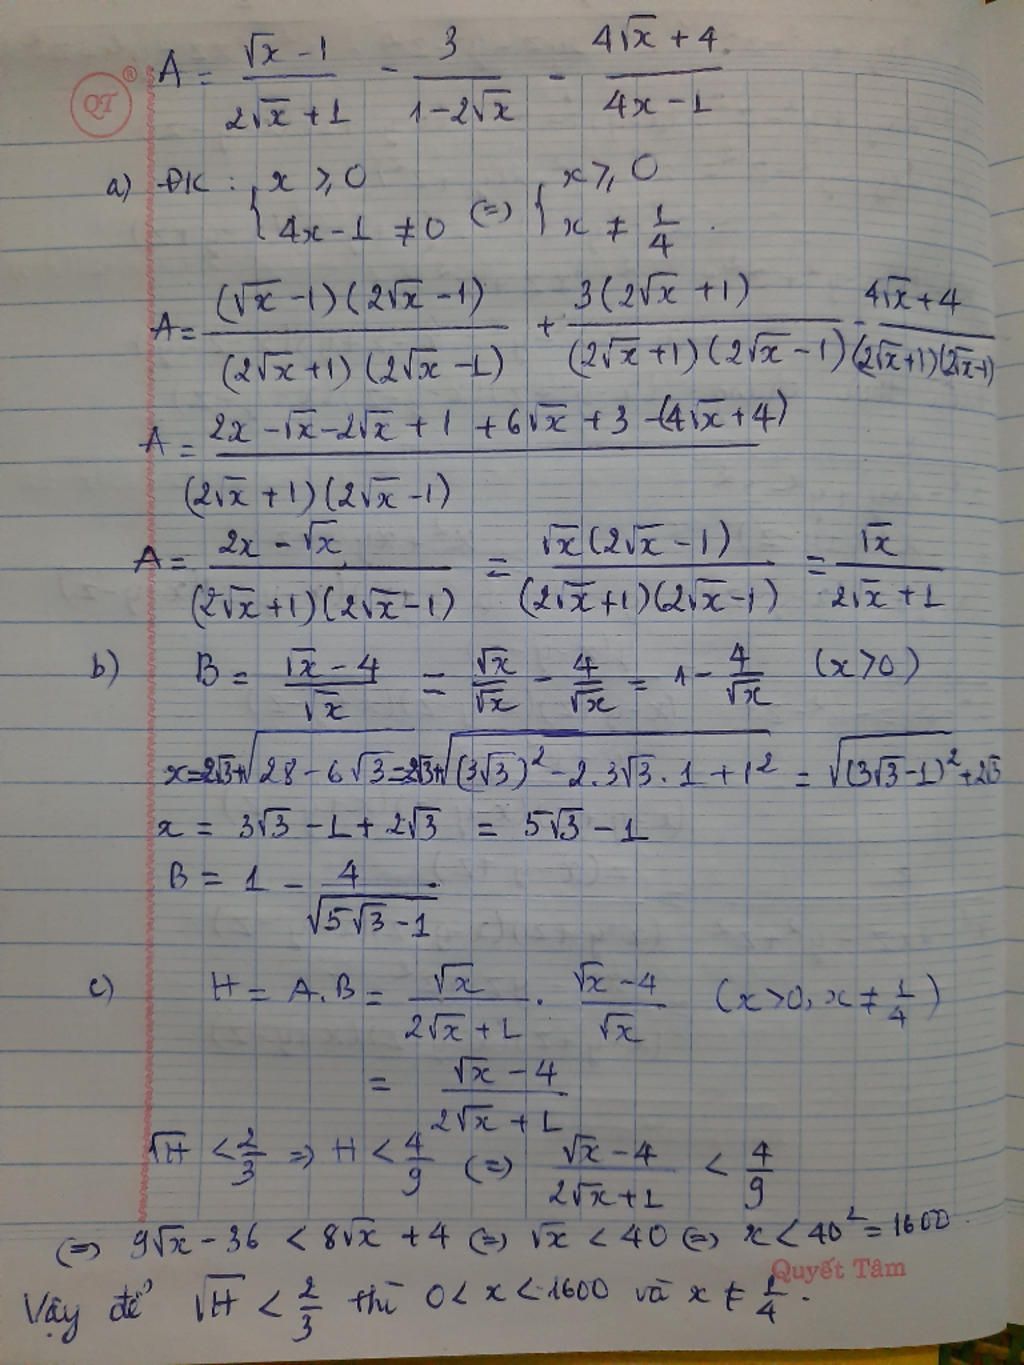 A = (√x - 1)/(2√x + 1) - 3/(1 - 2√x) - (4√x + 4)/(4x - 1)
QT ®
a) ĐK : { x ≥ 0 ; 4x - 1 ≠ 0 (=) { x ≥ 0 ; x ≠ 1/4 .
A = (√x - 1)(2√x - 1)/((2√x + 1)(2√x - 1)) + 3(2√x + 1)/((2√x + 1)(2√x - 1)) - (4√x + 4)/((2√x+1)(2√x-1))
A = (2x - √x - 2√x + 1 + 6√x + 3 - (4√x + 4))/((2√x + 1)(2√x - 1))
A = (2x - √x)/((2√x + 1)(2√x - 1)) = √x(2√x - 1)/((2√x + 1)(2√x - 1)) = √x/(2√x + 1)
b) B = (√x - 4)/√x = √x/√x - 4/√x = 1 - 4/√x (x > 0)
x = 2√3 + √(28 - 6√3) = 2√3 + √((3√3)² - 2.3√3.1 + 1²) = √((3√3 - 1)²) + 2√3
x = 3√3 - 1 + 2√3 = 5√3 - 1
B = 1 - 4/√(5√3 - 1) .
c) H = A.B = √x/(2√x + 1) . (√x - 4)/√x (x > 0, x ≠ 1/4)
= (√x - 4)/(2√x + 1)
√H < 2/3 => H < 4/9 (=) (√x - 4)/(2√x + 1) < 4/9
(=) 9√x - 36 < 8√x + 4 (=) √x < 40 (=) x < 40² = 1600
Quyết Tâm
Vậy để √H < 2/3 thì 0 < x < 1600 và x ≠ 1/4 .